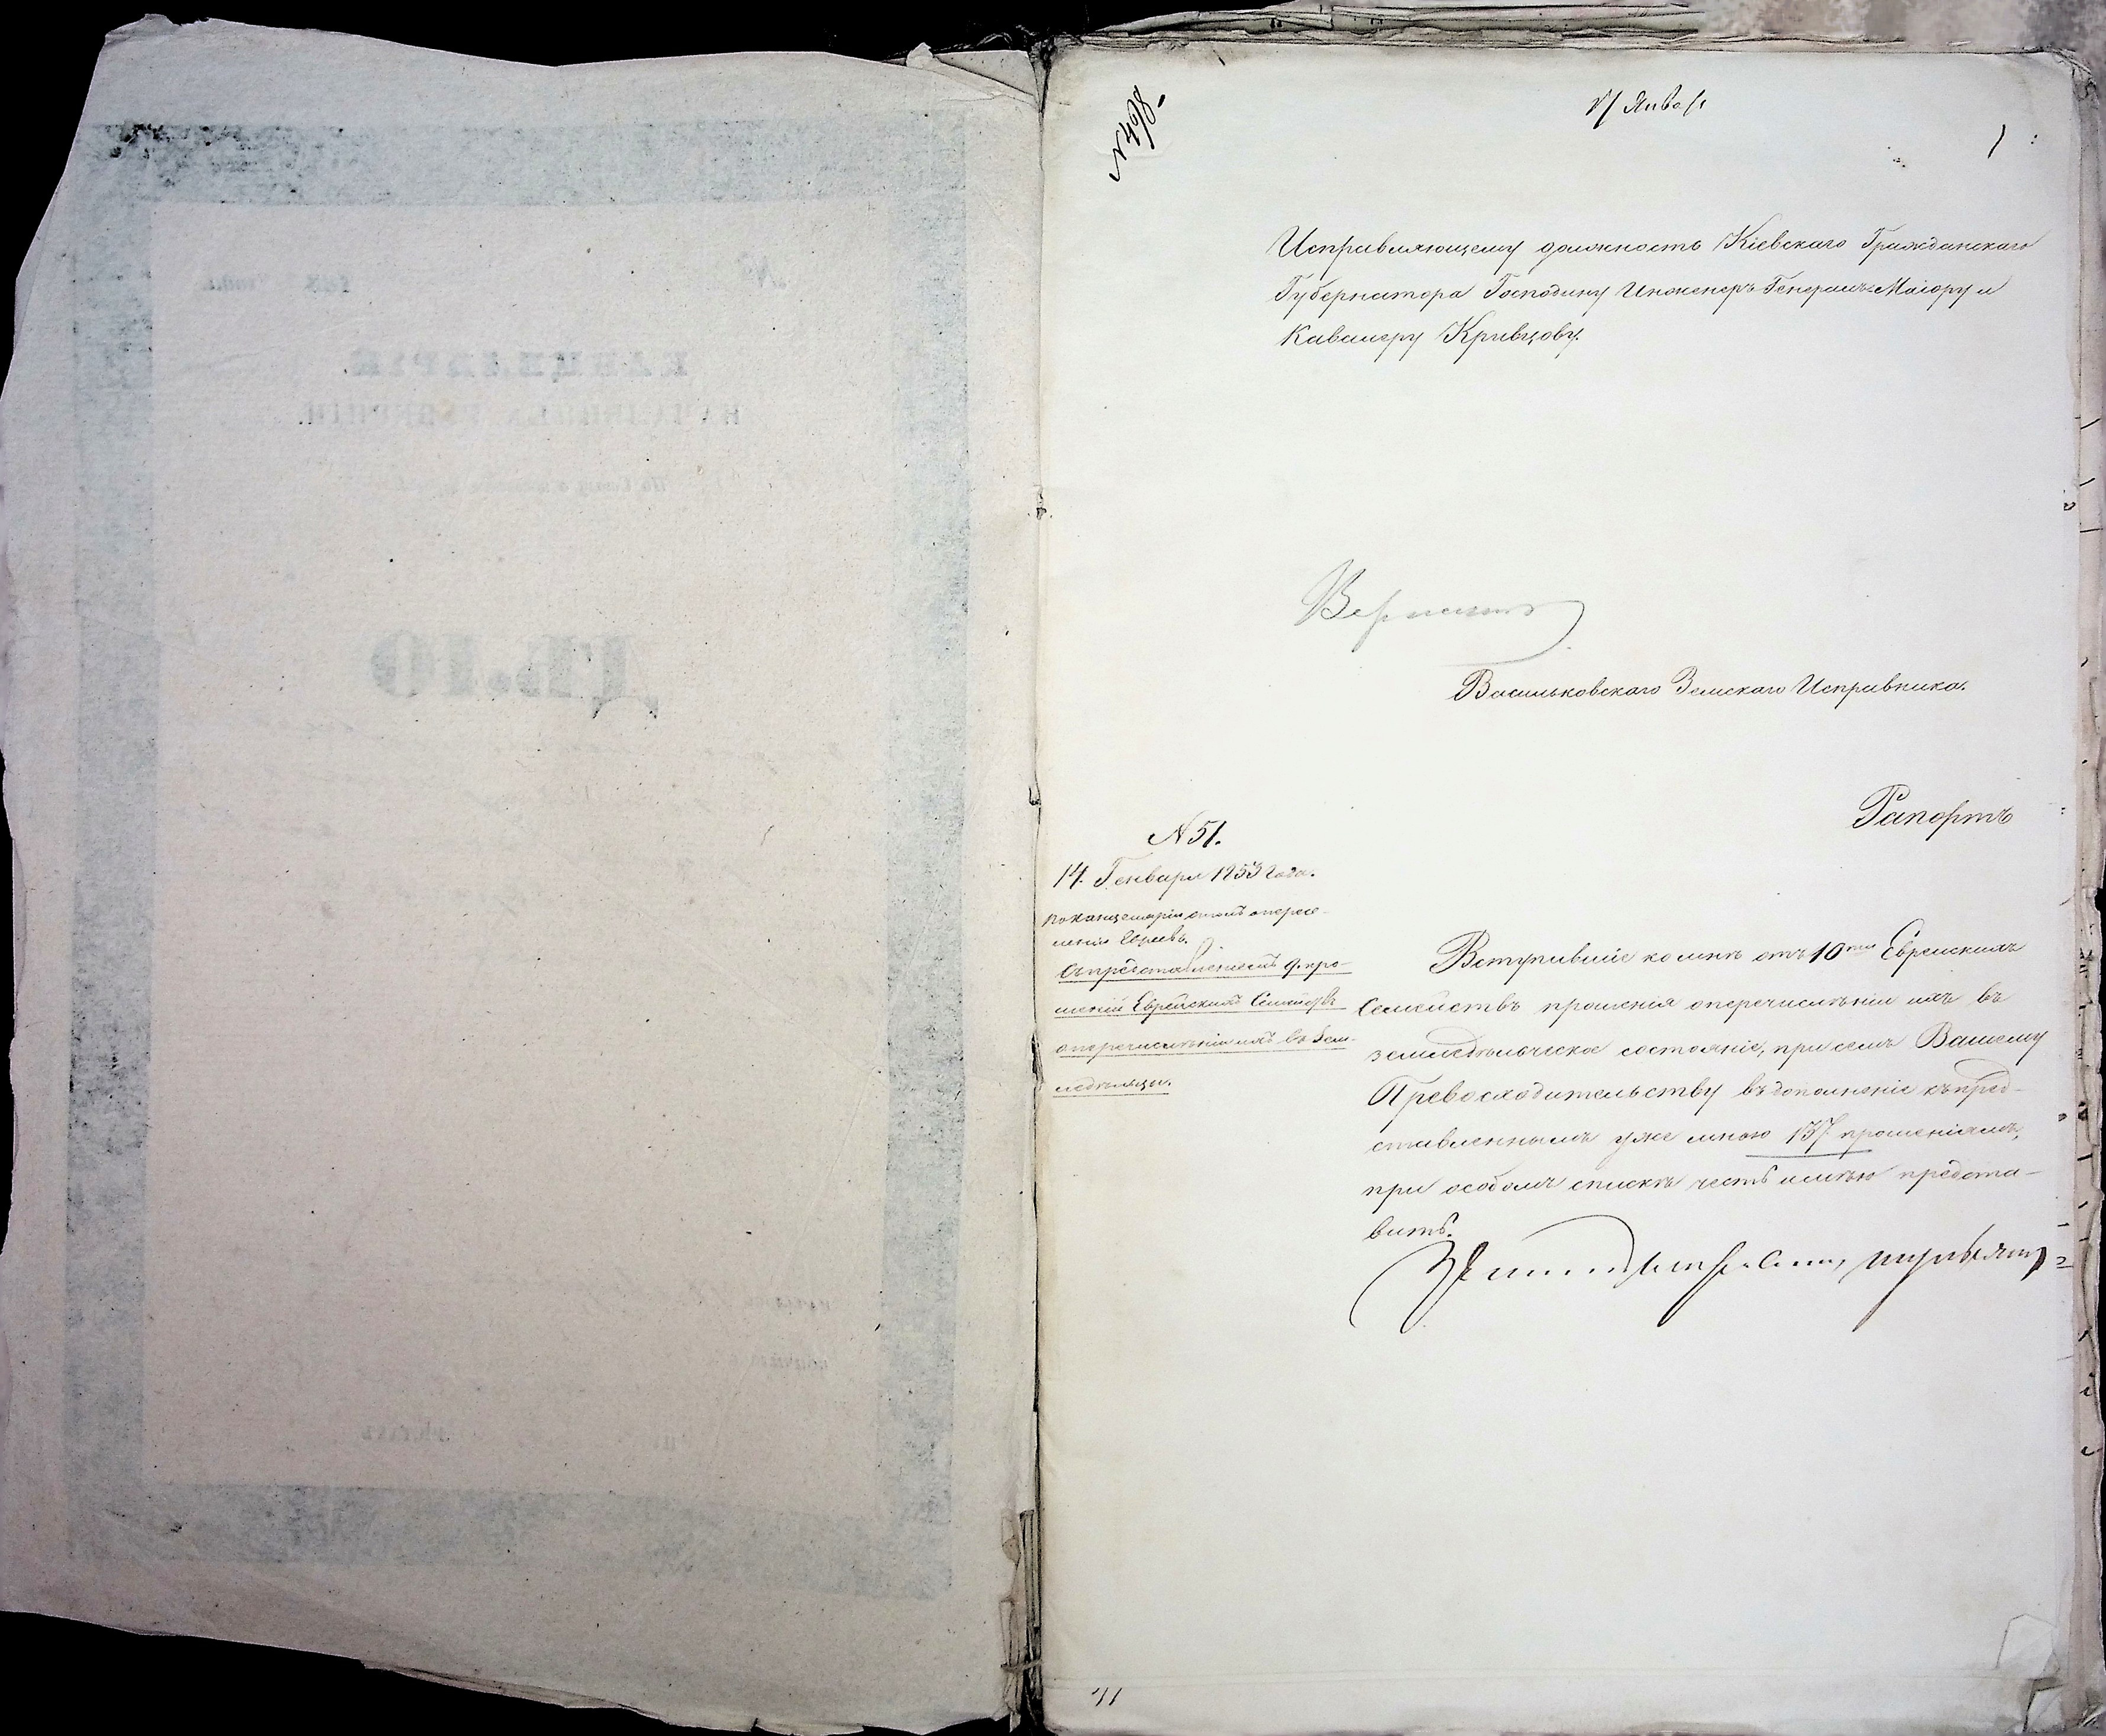 КАНЦЕЛЯРІЯ
НАЧАЛЬНИКА ГУБЕРНІИ.
ДѢЛО
N 498.
17 Января
1
Исправляющему должность Кіевскаго Гражданскаго
Губернатора Господину Инженеръ-Генералъ-Маіору и
Кавалеру Кривцову.
Васильковскаго Земскаго Исправника.
Рапортъ
N 51.
14. Генваря 1853 года.
По Канцеляріи, столъ о пересе-
леніи Евреевъ.
Съ представленіемъ 9. про-
шеній Еврейскихъ Семействъ
о перечисленіи ихъ въ Зем-
ледѣльцы.
Вступившіе ко мнѣ отъ 10ти Еврейскихъ
Семействъ прошенія о перечисленіи ихъ въ
земледѣльческое состояніе, при семъ Вашему
Превосходительству въ дополненіе къ пред-
ставленнымъ уже мною 137 прошеніямъ,
при особомъ спискѣ честь имѣю предста-
вить.